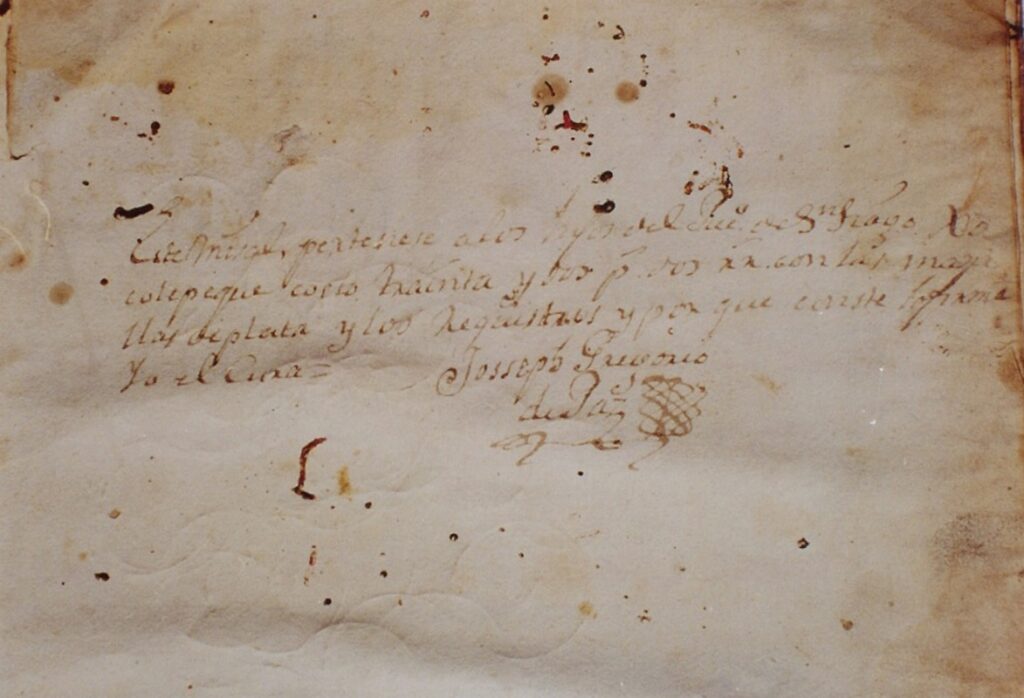 Este Misal, pertenese a los hijos del Pue.º de Sⁿ tiago No
colepeque costo trainta y dos p.s dos rr. con las mani
llas de plata y los Registros y por que conste lo firmé
Yo el Cura =
Josseph Gregorio
de Paz